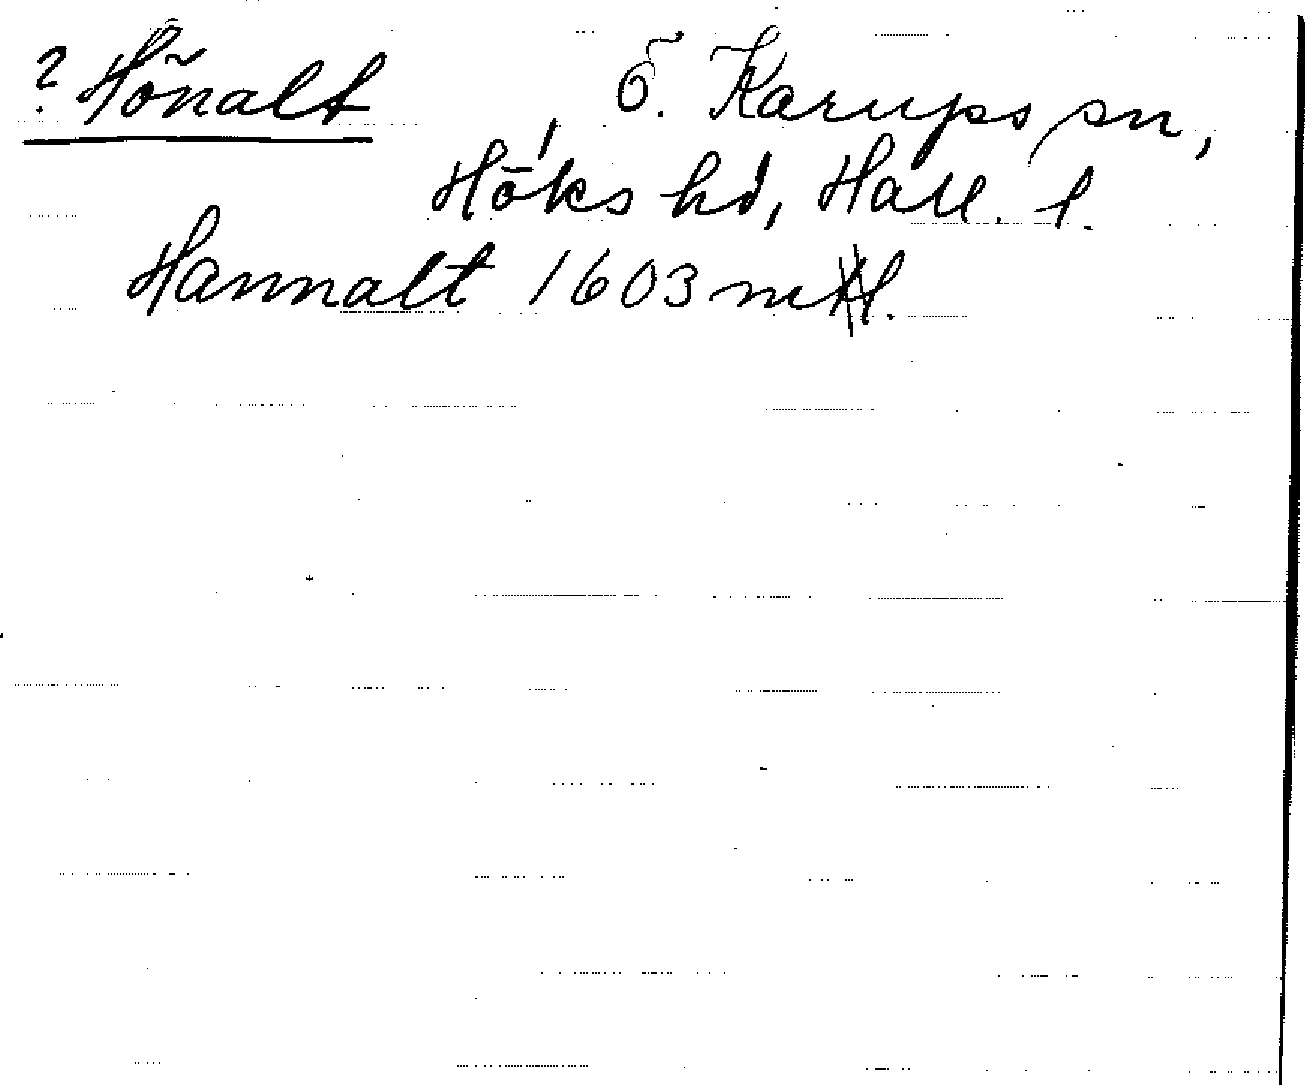 ? Hönalt Ö. Karups sn,
Höks hd, Hall. l.
Hannalt 1603 mtl.